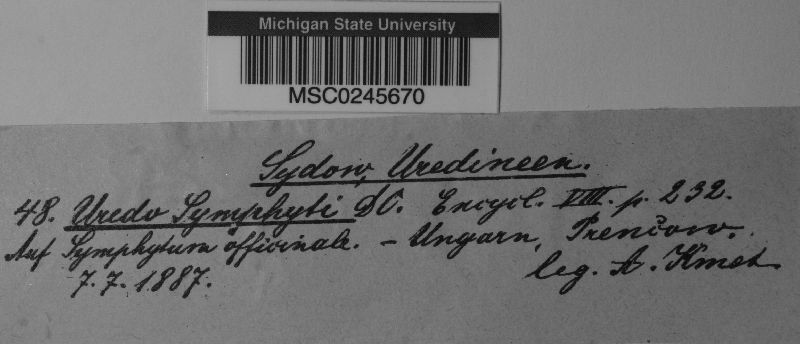 Michigan State University
MSC0245670
Sydow, Uredineen.
48. Uredo Symphyti DC. Encycl. VIII. p. 232.
Auf Symphytum officinale. – Ungarn, Prenčow.
7. 7. 1887. leg. A. Kmet.